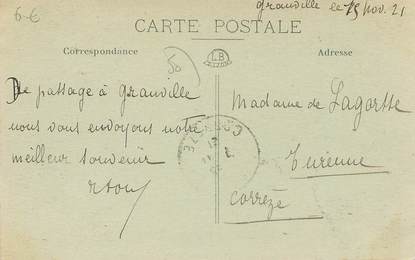 6-€
Granville le 15 nov. 21
CARTE POSTALE
Correspondance
LB
Adresse
De passage à Granville
nous vous envoyons notre
meilleur souvenir
Madame de Lagorsse
Turenne
Corrèze
CORREZE